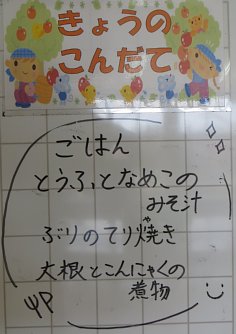 きょうの
こんだて
ごはん
とうふとなめこの
みそ汁
ぶりのてり焼き
や
大根とこんにゃくの
煮物